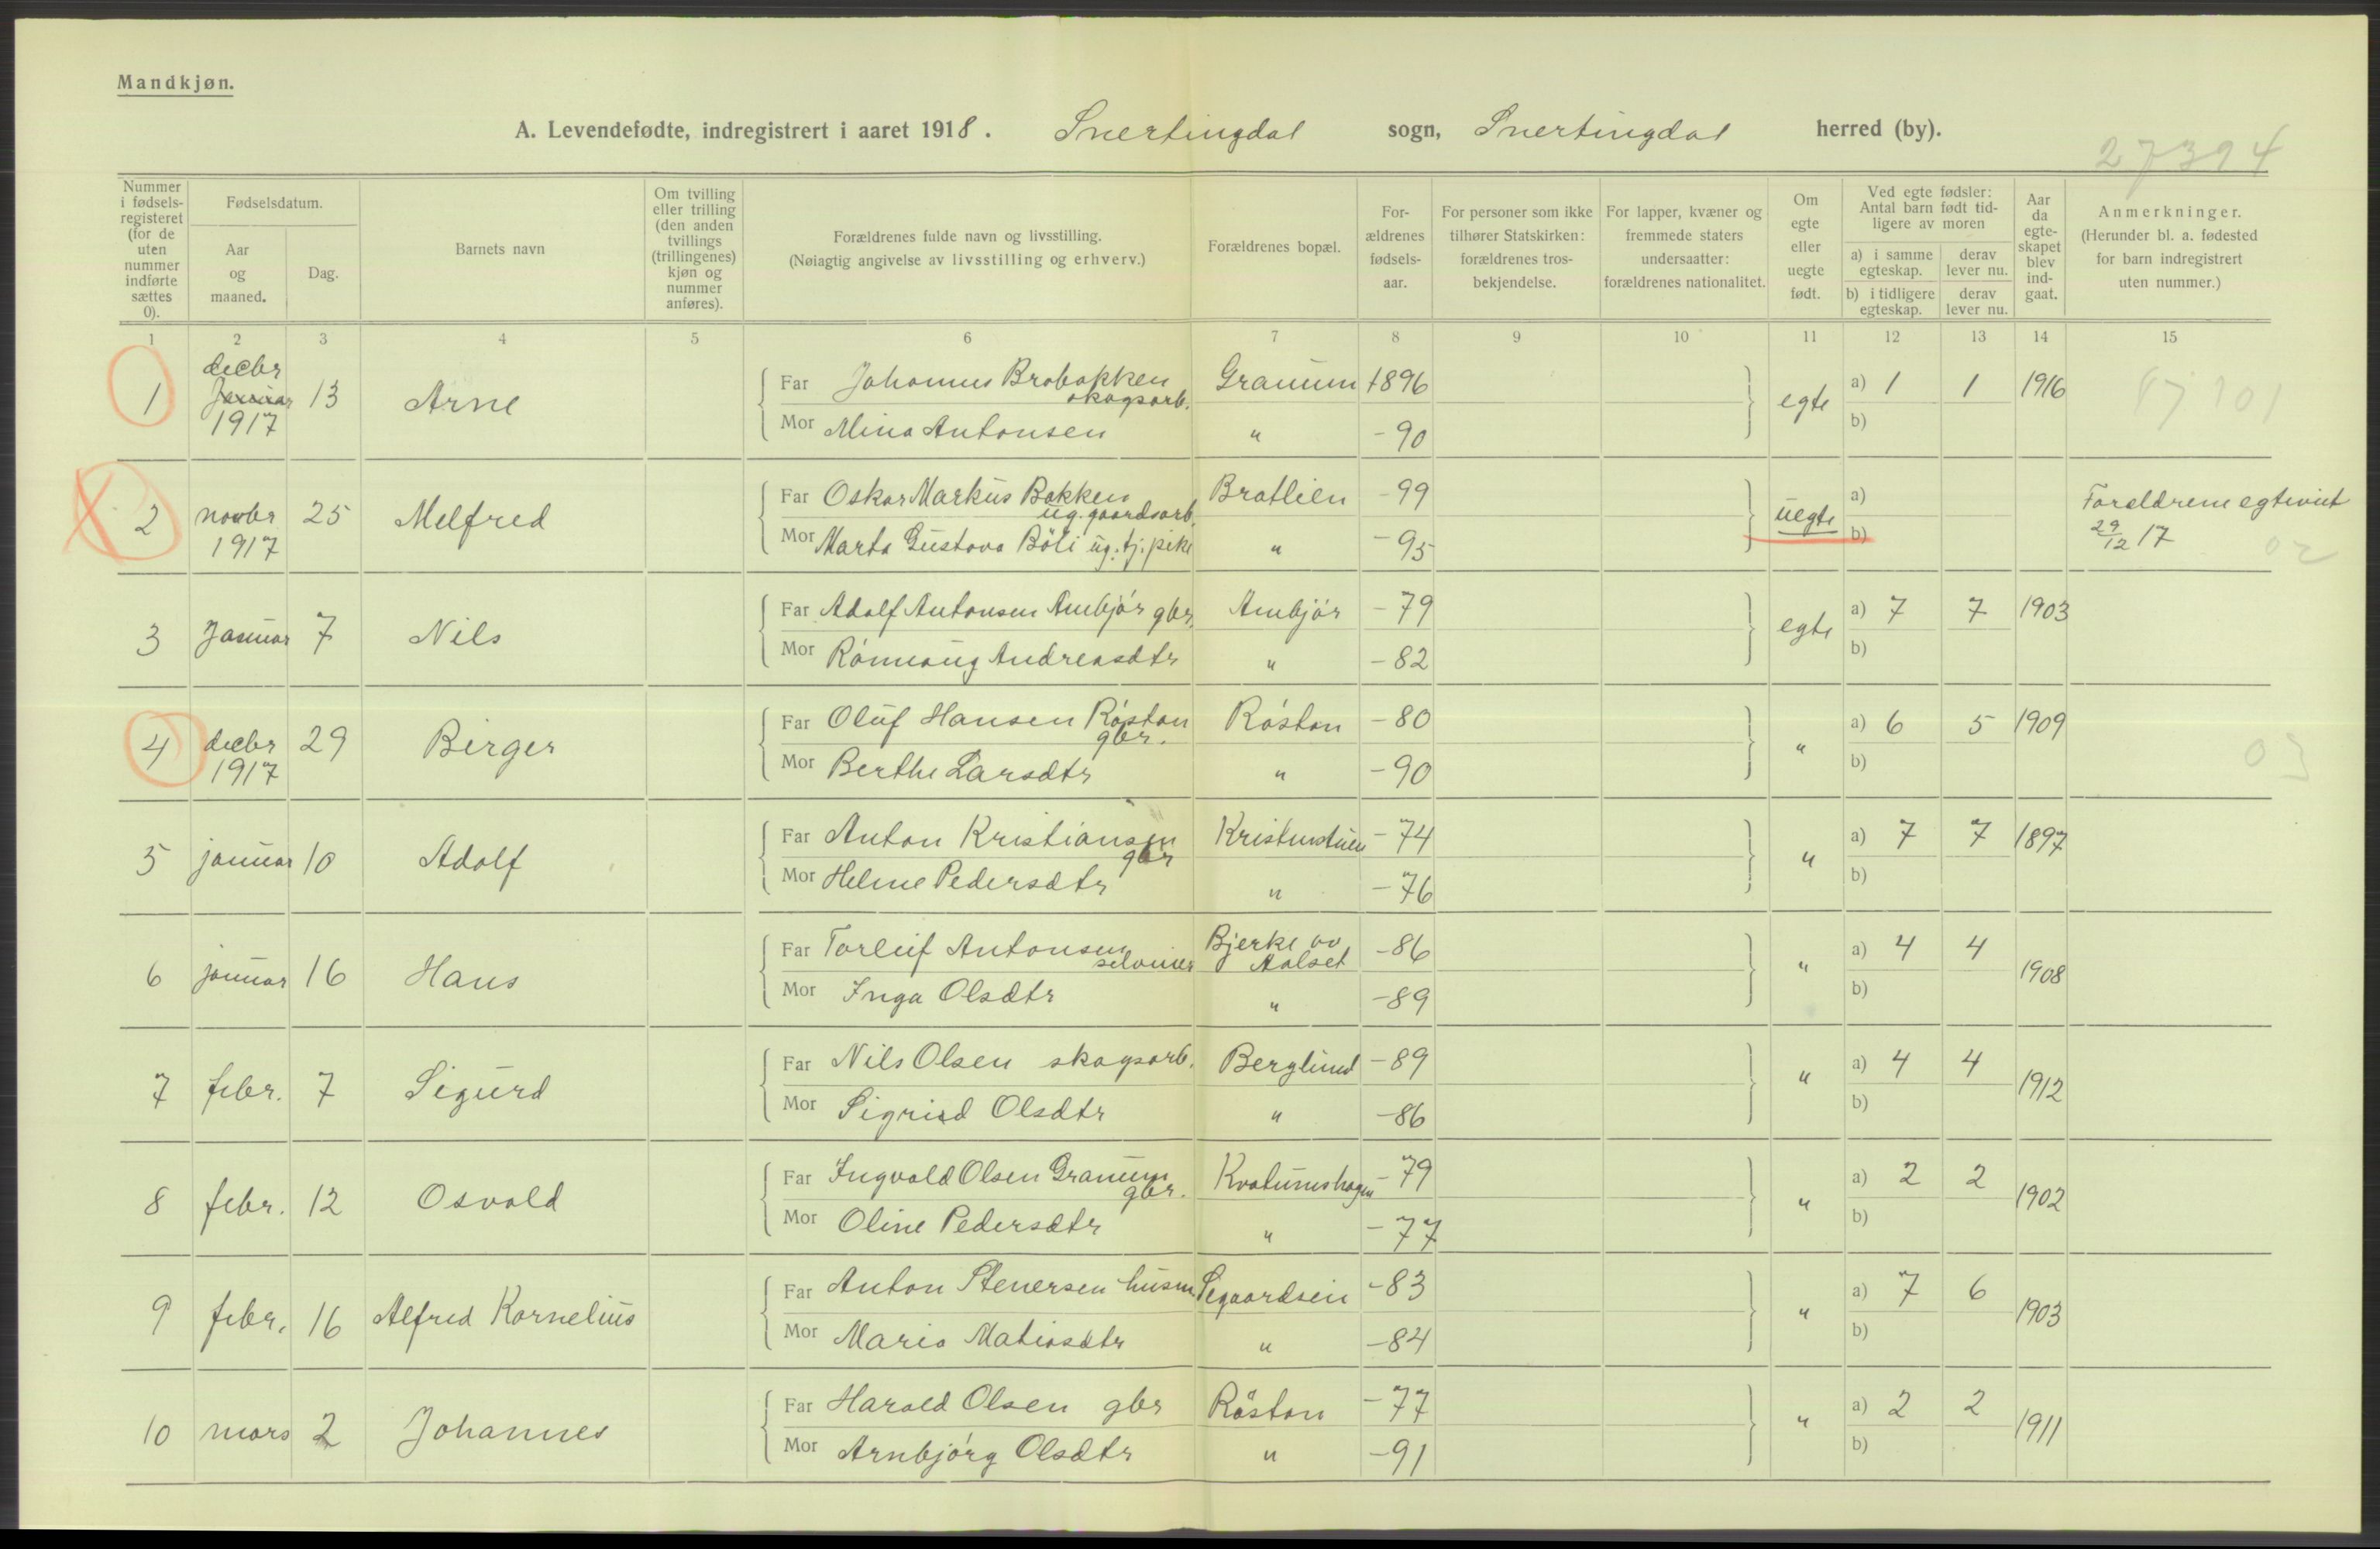 Mandkjøn.
A. Levendefødte, indregistrert i aaret 1918. Snertingdal sogn, Snertingdal herred (by).
27394
Nummer i fødsels-registeret (for de uten nummer indførte sættes 0).
Fødselsdatum.
Aar og maaned.
Dag.
Barnets navn
Om tvilling eller trilling (den anden tvillings (trillingenes) kjøn og nummer anføres).
Forældrenes fulde navn og livsstilling.
(Nøiagtig angivelse av livsstilling og erhverv.)
Forældrenes bopæl.
For-ældrenes fødsels-aar.
For personer som ikke tilhører Statskirken: forældrenes tros-bekjendelse.
For lapper, kvæner og fremmede staters undersaatter: forældrenes nationalitet.
Om egte eller uegte født.
Ved egte fødsler: Antal barn født tid-ligere av moren
a) i samme egteskap.
derav lever nu.
b) i tidligere egteskap.
derav lever nu.
Aar da egte-skapet blev ind-gaat.
Anmerkninger.
(Herunder bl. a. fødested for barn indregistrert uten nummer.)
1 2 3 4 5 6 7 8 9 10 11 12 13 14 15
1 decbr Januar 1917 13 Arne
Far Johannes Brobakken skogsarb. Granum 1896 egte a) 1 1 1916
Mor Mina Antonsen " -90 b)
2 novbr 1917 25 Melfred
Far Oskar Markus Bakken ug. gaardsarb. Bratlien -99 uegte a) Foreldrene egteviet 29/12 17
Mor Marta Gustava Böli ug. tj. pike " -95 b)
02
3 Januar 7 Nils
Far Adolf Antonsen Ambjör gbr. Ambjör -79 egte a) 7 7 1903
Mor Rönnaug Andreasdtr " -82 b)
4 decbr 1917 29 Birger
Far Oluf Hansen Röstøn gbr. Röston -80 " a) 6 5 1909
Mor Berthe Larsdtr " -90 b)
03
5 januar 10 Adolf
Far Anton Kristiansen gbr -74 " a) 7 7 1897
Mor Helene Pedersdtr " -76 b)
6 januar 16 Hans
Far Torleif Antonsen selveier Bjerke av Aalset -86 " a) 4 4 1908
Mor Inga Olsdtr " -89 b)
7 febr. 7 Sigurd
Far Nils Olsen skogsarb. Berglund -89 " a) 4 4 1912
Mor Sigrid Olsdtr " -86 b)
8 febr. 12 Osvald
Far Ingvald Olsen Granum gbr. Kvatumshagen -79 " a) 2 2 1902
Mor Oline Pedersdtr " -77 b)
9 febr. 16 Alfred Kornelius
Far Anton Stenersen husm. -83 " a) 7 6 1903
Mor Maria Matiasdtr " -84 b)
10 mars 2 Johannes
Far Harald Olsen gbr Röston -77 " a) 2 2 1911
Mor Arnbjörg Olsdtr " -91 b)